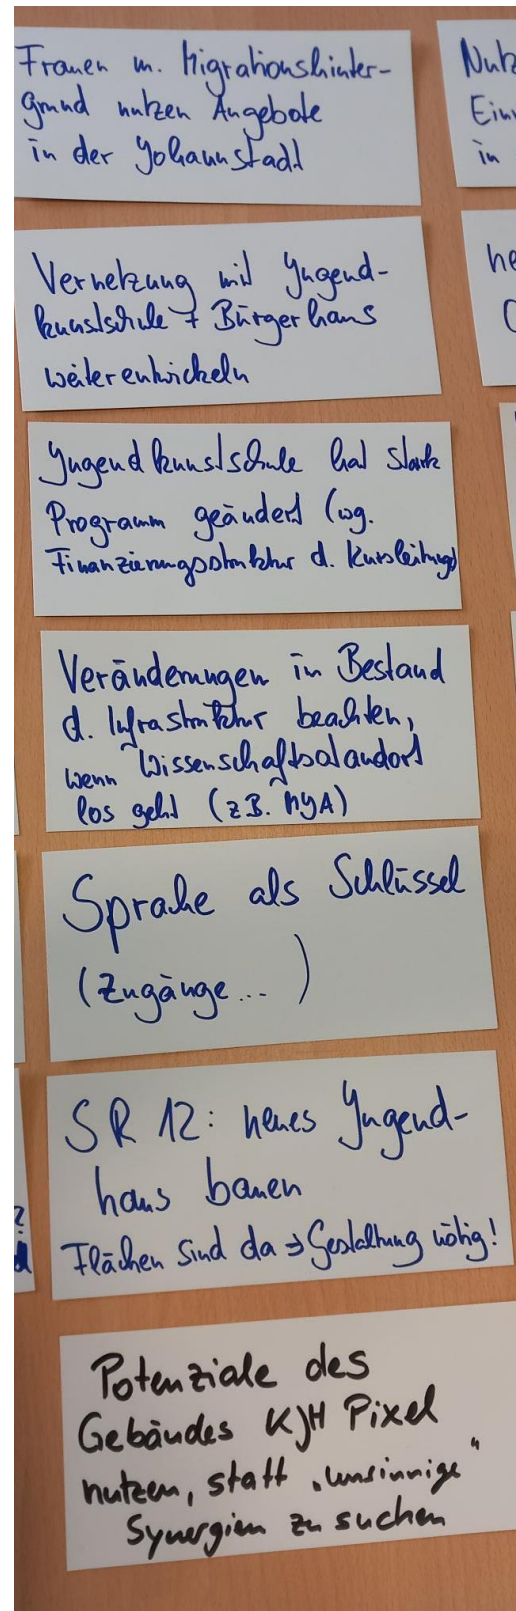 Frauen m. Migrationshinter-
grund nutzen Angebote
in der Johannstadt
Vernetzung mit Jugend-
kunstschule + Bürgerhaus
weiterentwickeln
Jugendkunstschule hat stark
Programm geändert (wg.
Finanzierungsstruktur d. Kursleitungs
Veränderungen in Bestand
d. Infrastruktur beachten,
wenn Wissenschaftsstandort
los geht (zB. MJA)
Sprache als Schlüssel
(Zugänge... )
SR 12: neues Jugend-
haus bauen
Flächen sind da → Gestaltung nötig!
Potenziale des
Gebäudes KJH Pixel
nutzen, statt „unsinnige"
Synergien zu suchen
Nutz
Ein
in
he